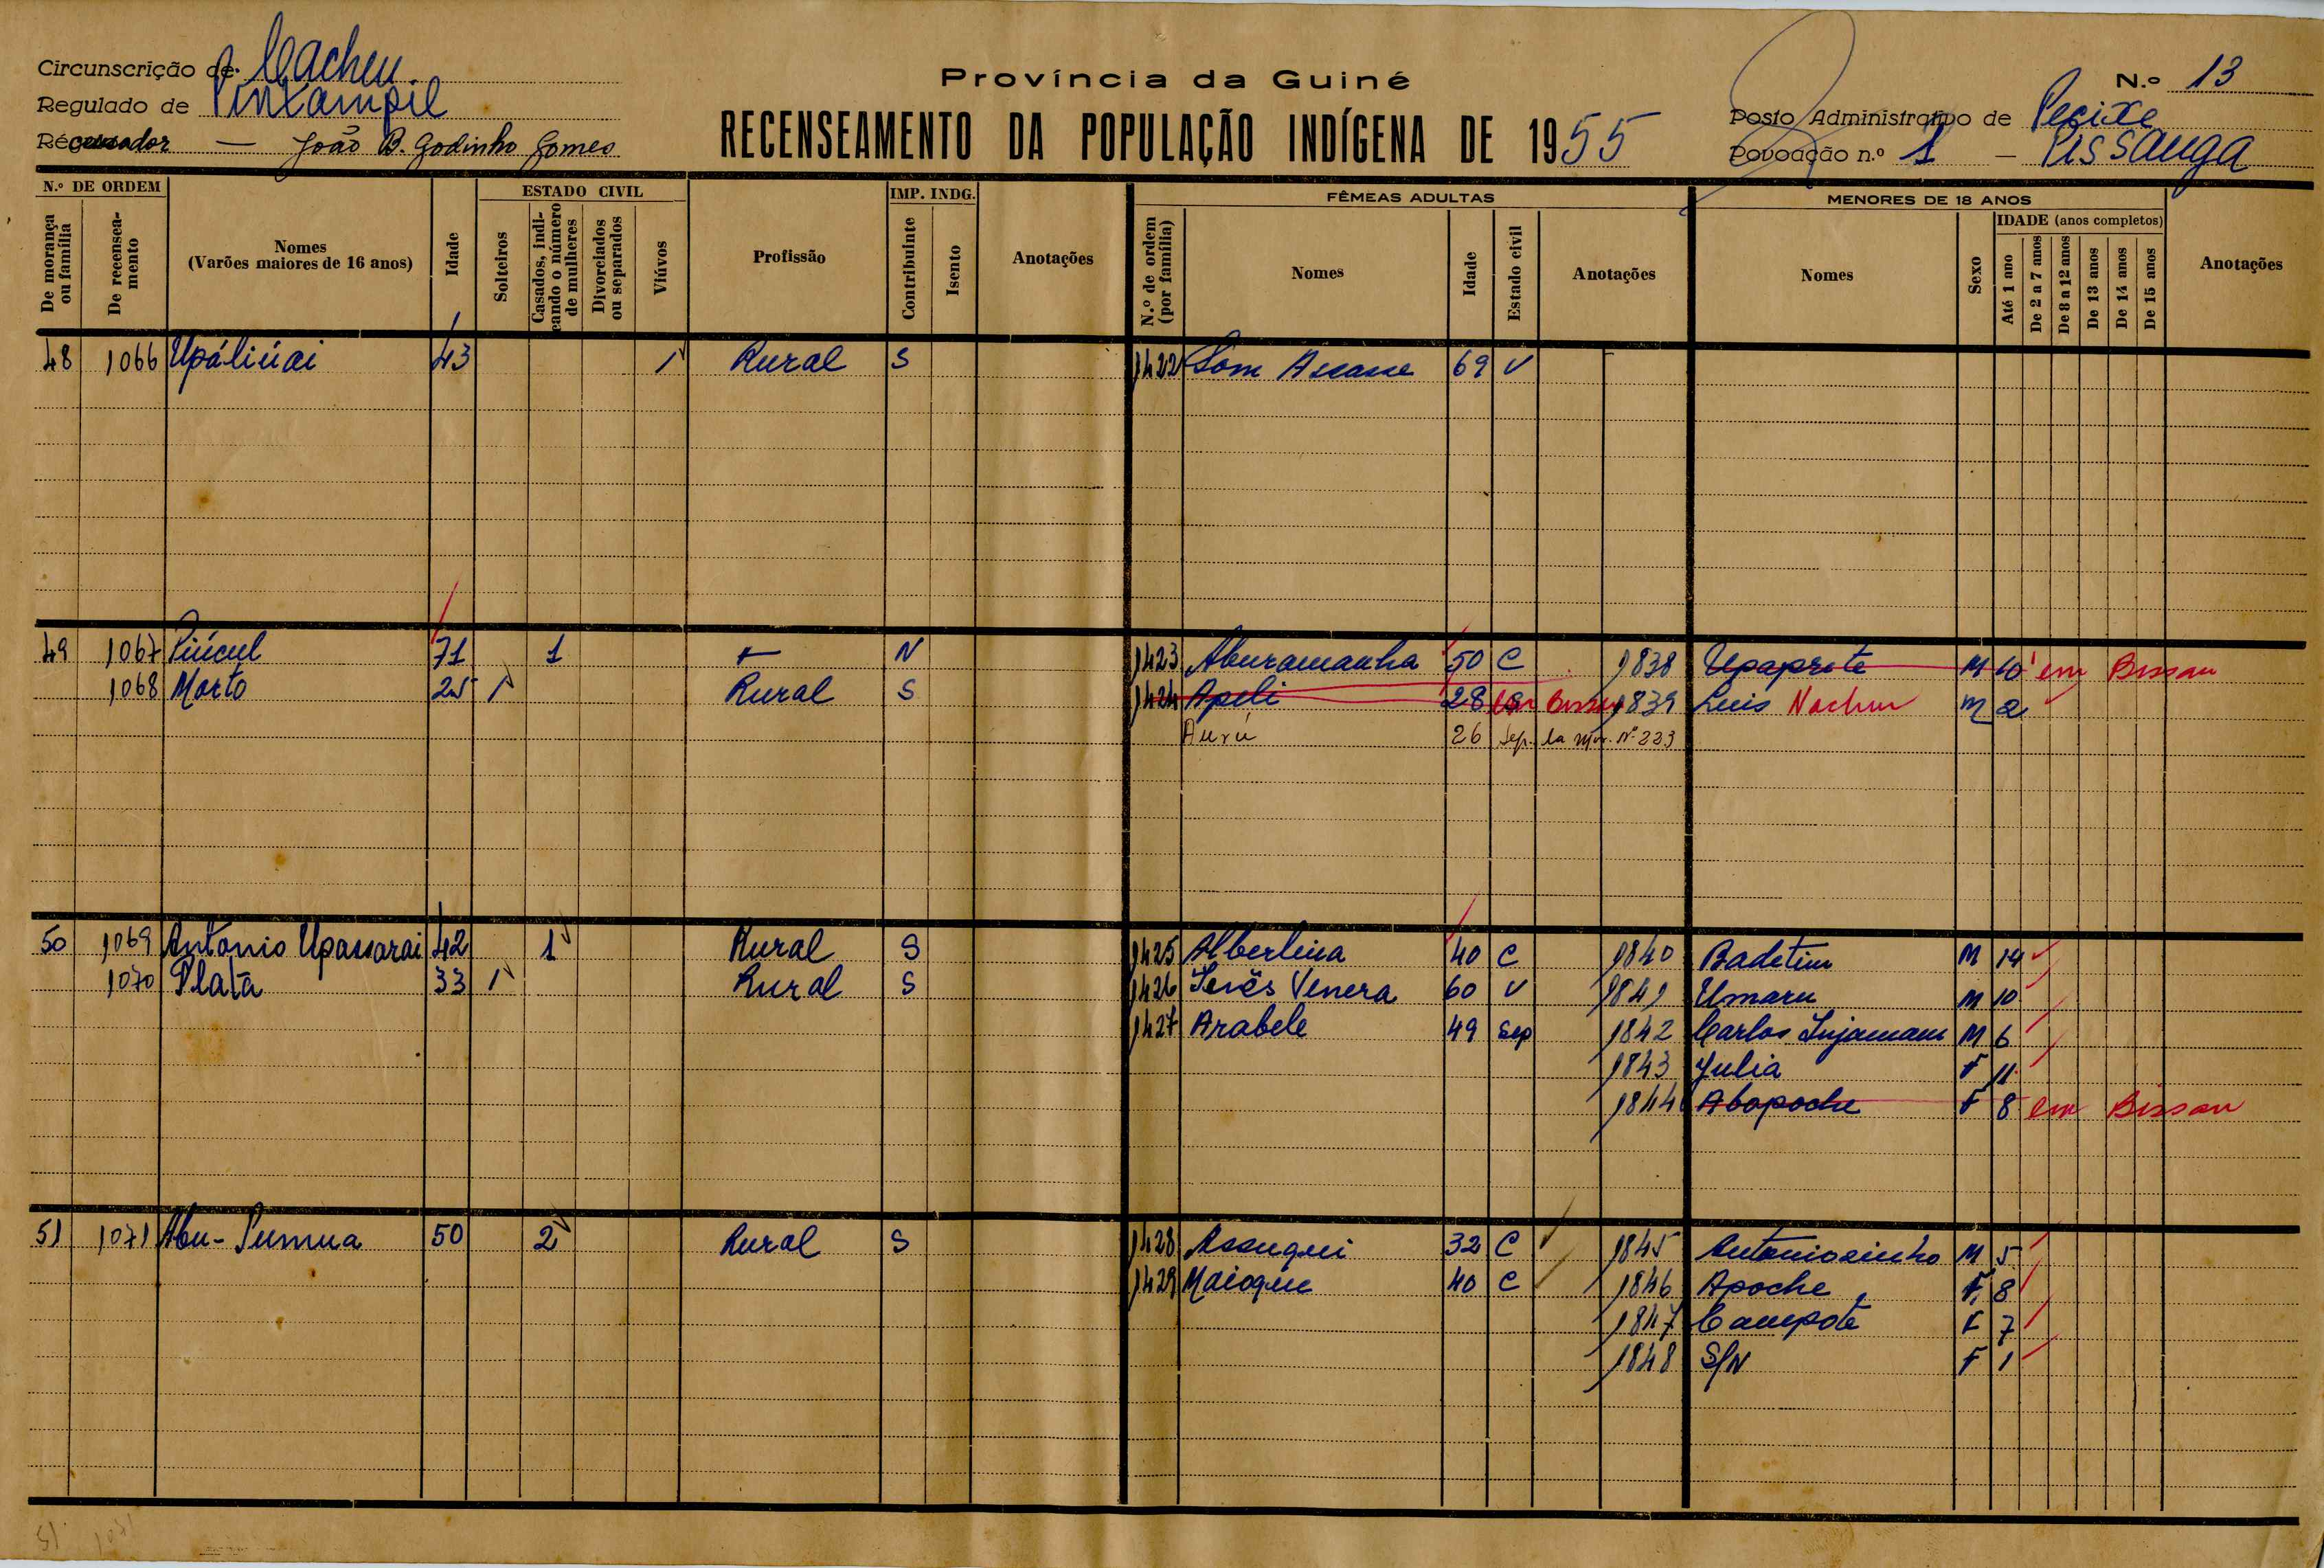 Circunscrição de Cacheu
Regulado de Pintampil
Recenseador — João B. Godinho Gomes
Província da Guiné
RECENSEAMENTO DA POPULAÇÃO INDÍGENA DE 1955
N.º 13
Posto Administrativo de Pecixe
Povoação n.º 1 — Pissanga
N.º DE ORDEM
De morança ou família
De recenseamento
Nomes
(Varões maiores de 16 anos)
Idade
ESTADO CIVIL
Solteiros
Casados, indicando o número de mulheres
Divorciados ou separados
Viúvos
Profissão
IMP. INDG.
Contribuinte
Isento
Anotações
FÊMEAS ADULTAS
N.º de ordem (por família)
Nomes
Idade
Estado civil
Anotações
MENORES DE 18 ANOS
Nomes
Sexo
IDADE (anos completos)
Até 1 ano
De 2 a 7 anos
De 8 a 12 anos
De 13 anos
De 14 anos
De 15 anos
Anotações
48 1066 Upáliúai 43 1 Rural S 1422 Som 69 V
49 1067 71 1 N 1423 Aburamanha 50 C 1838 Upaprete M 10 em Bissau
1068 Morto 25 1 Rural S 1424 Apeli 28 em Bissau 1839 Luis Nachur M 2
Aurú 26 Sep. la mor. Nº 223
50 1069 Antonio Upassarai 42 1 Rural S 1425 Albertina 40 C 1840 Badetim M 14
1070 Platã 33 1 Rural S 1426 Venera 60 V 1841 Umaru M 10
1427 Arabele 49 Sep 1842 Carlos M 6
1843 Julia F 11
1844 Abapoche F 8 em Bissau
51 1071 Abu- 50 2 Rural S 1428 Assuqui 32 C 1845 Antoniosinho M 5
1429 Maioque 40 C 1846 Apoche F 8
1847 Campote F 7
1848 S/N F 1